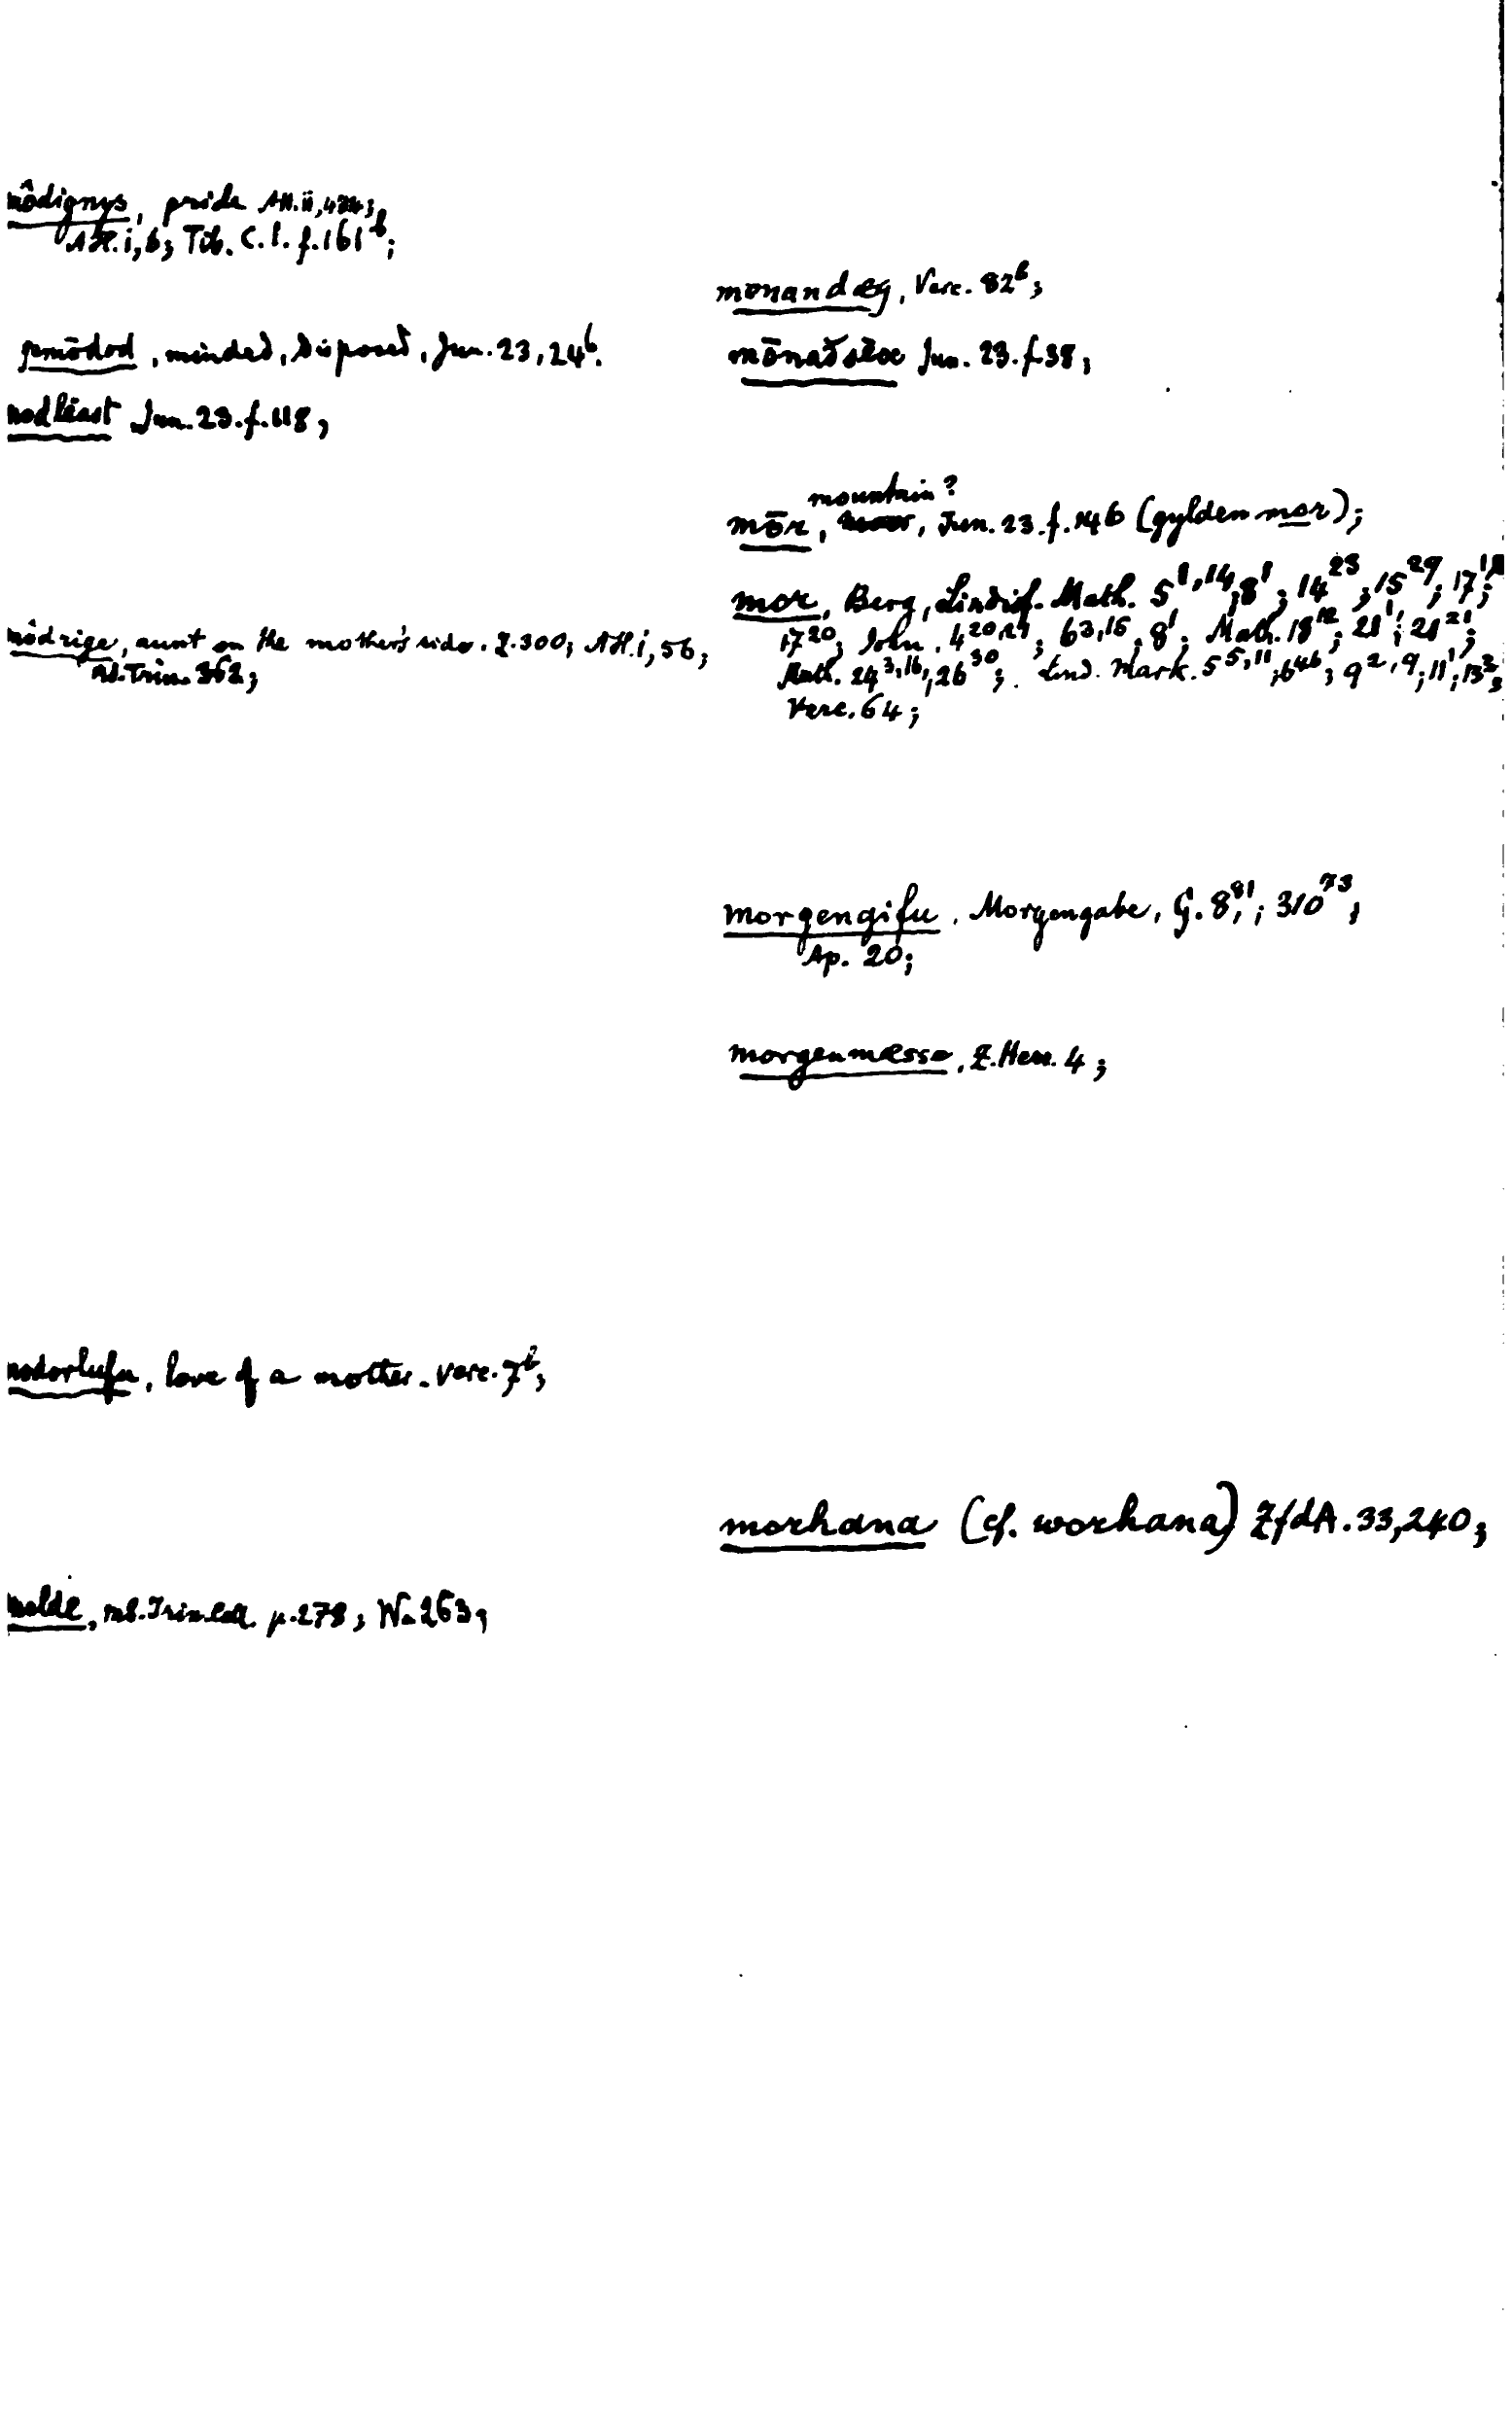 môdignys, pride AH. ii, 424;
AH. i, 6; Tib. C. 1. f. 161ᵇ;
gemōdod, minded, disposed, Jun. 23, 24ᵇ.
modléast Jun. 23. f. 118;
môdrige, aunt on the mother's side. Z. 300; AH. i, 56;
362;
modorlufu, love of a mother. Verc. 7ᵇ;
molde, p. 278; W. 263;
monandæg, Verc. 82ᵇ;
mōnaðsēoc Jun. 23. f. 38;
mountain?
mōr, Jun. 23. f. 146 (gylden mor);
mor, Berg, Lindisf. Math. 5¹,¹⁴; 8¹; 14²³; 15²⁹; 17¹;
17²⁰; John. 4²⁰,²¹; 6³,¹⁵, 8¹; Math. 18¹²; 21¹; 21²¹;
Math. 24³,¹⁶; 26³⁰; Lind. Mark. 5⁵,¹¹; 6⁴⁶; 9²,⁹; 11¹; 13³;
Verc. 64;
morgengifu, Morgengabe, G. 8⁸¹; 310⁷³;
Ap. 20;
morgenmæsse, Z. 4;
morhana (cf. worhana) ZfdA. 33, 240;